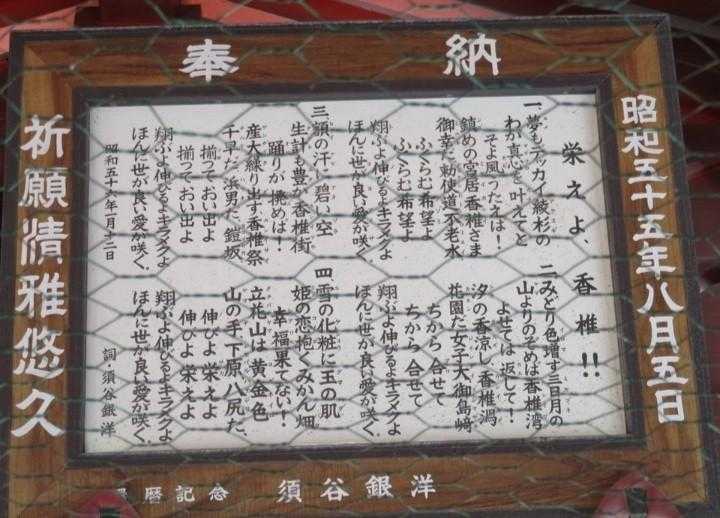 奉納
昭和五十五年八月五日
栄えよ、香椎!!
一、夢もデッカイ綾杉の
わが真心を叶えてと
そよ風うったえは!
鎮めの宮居香椎さま
御幸た勅使道不老水
ふくらむ希望よ
ふくらむ希望よ
翔ぶよ伸びるよキラメクよ
ほんに世が良い愛が咲く。
二、みどり色増す三日月の
山よりのぞめば香椎湾
よせては返して!
汐の香涼し香椎潟
花園た女子大御島崎
ちから合せて
ちから合せて
翔ぶよ伸びるよキラメクよ
ほんに世が良い愛が咲く。
三、額の汗に碧い空
生計も豊か香椎街
踊りが撓めば!
産大繰り出す香椎祭
千早た浜男た鎧坂
揃っておい出よ
揃っておい出よ
翔ぶよ伸びるよキラメクよ
ほんに世が良い愛が咲く。
四、雪の化粧に玉の肌
姫の恋抱くみかん畑
幸福果てない!
立花山は黄金色
山の手下原八尻た
伸びよ栄えよ
伸びよ栄えよ
翔ぶよ伸びるよキラメクよ
ほんに世が良い愛が咲く。
詞・須谷銀洋
祈願清雅悠久
還暦記念 須谷銀洋